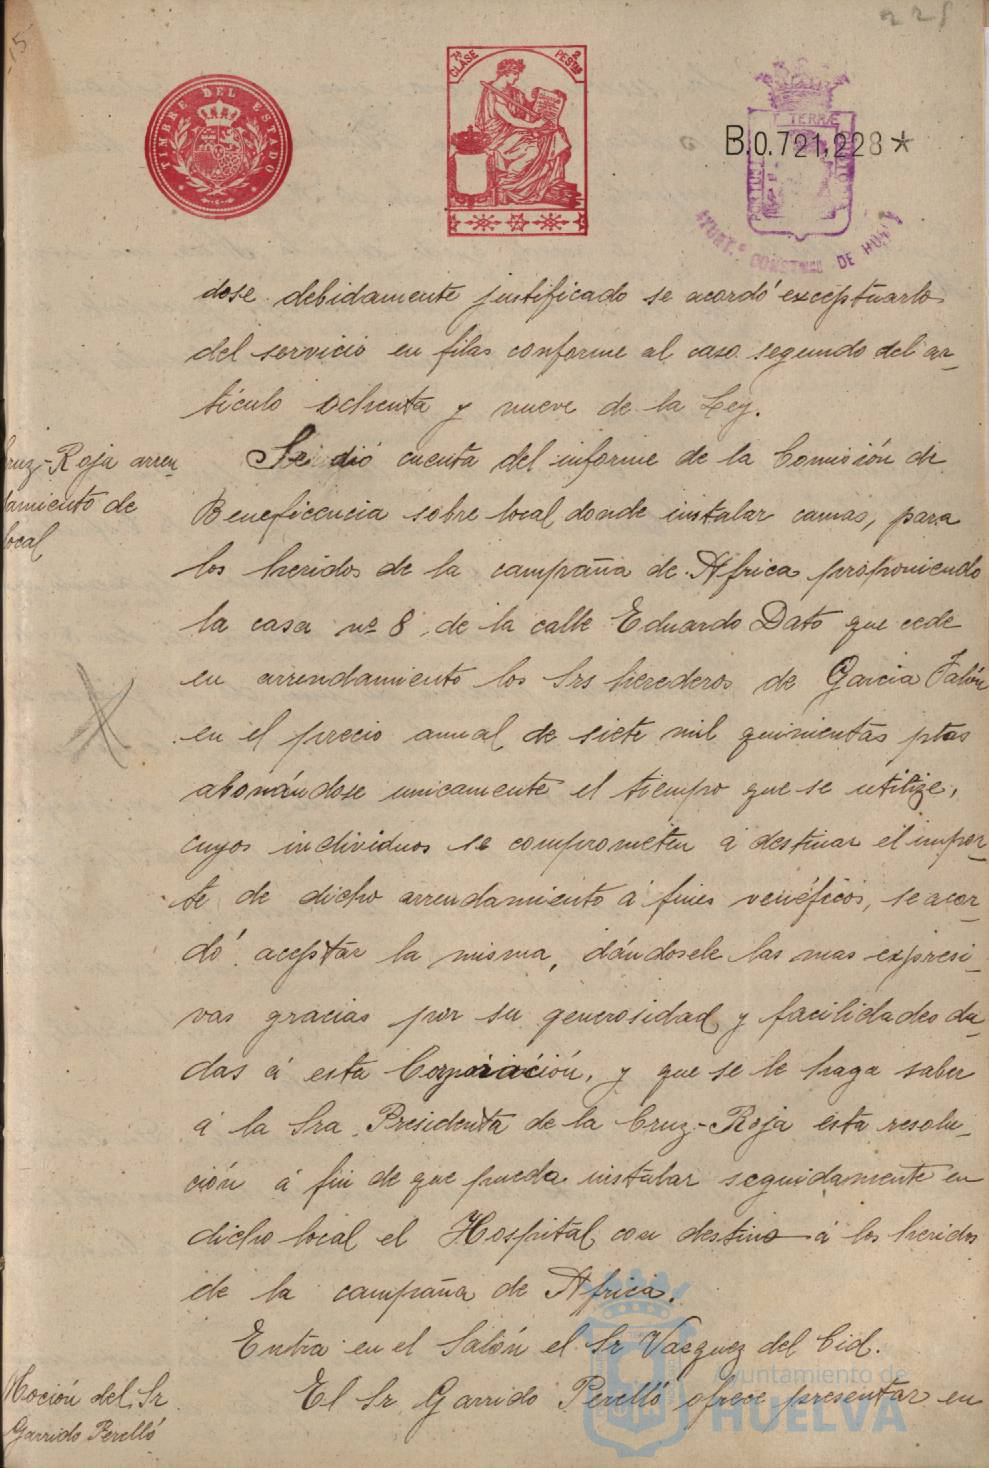 228
15
TIMBRE DEL ESTADO
7ª CLASE
2 PESTAS
TERRÆ
PORTUM
B.0.721,228*
AYUNT.º CONSTNAL DE HUELVA
dose debidamente justificado se acordó exceptuarlo
del servicio en filas conforme al caso segundo del ar-
tículo ochenta y nueve de la Ley.
ruz-Roja arren
damiento de
local
Se dió cuenta del informe de la Comisión de
Beneficencia sobre local donde instalar camas, para
los heridos de la campaña de Africa proponiendo
la casa nº 8, de la calle Eduardo Dato que cede
en arrendamiento los Srs herederos de Garcia Jalón
en el precio anual de siete mil quinientas ptas
abonándose unicamente el tiempo que se utilize,
cuyos individuos se comprometen á destinar el impor-
te de dicho arrendamiento á fines venéficos, se acor-
dó aceptar la misma, dándosele las mas expresi-
vas gracias por su generosidad y facilidades da-
das á esta Corporación, y que se le haga saber
á la Sra Presidenta de la Cruz-Roja esta resolu-
ción á fin de que pueda instalar seguidamente en
dicho local el Hospital con destino á los heridos
de la campaña de Africa.
Entra en el Salón el Sr Vazquez del Cid.
Moción del Sr
Garrido Perelló
El Sr Garrido Perelló ofrece presentar en
Ayuntamiento de
HUELVA